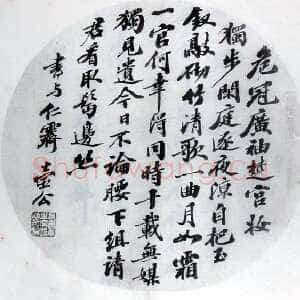 危冠廣袖楚宮妝
獨步閒庭逐夜涼自把玉
釵敲砌竹清歌一曲月如霜
一官何幸得同時十載無媒
獨見遺今日不論腰下組請
君看取鬢邊絲
書与仁霽